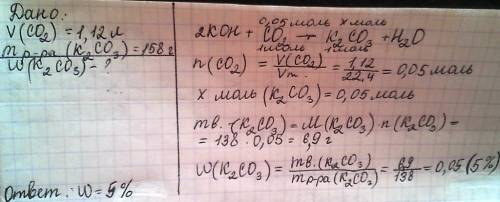 Дано:
V(CO₂) = 1,12 л
m р-ра (K₂CO₃) = 158 г
W(K₂CO₃) - ?
0,05 моль x моль
2KOH + CO₂ → K₂CO₃ + H₂O
1 моль 1 моль
n(CO₂) = V(CO₂)/Vm. = 1,12/22,4 = 0,05 моль
x моль (K₂CO₃) = 0,05 моль
m в. (K₂CO₃) = M(K₂CO₃) · n(K₂CO₃) =
= 138 · 0,05 = 6,9 г
W(K₂CO₃) = m в. (K₂CO₃)/m р-ра (K₂CO₃) = 6,9/138 = 0,05 (5%)
Ответ: W = 5%